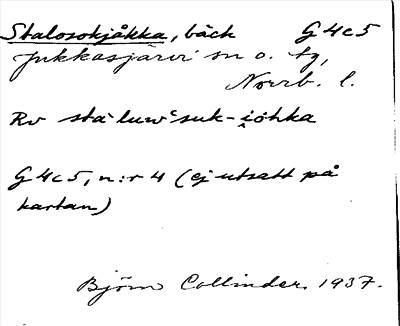 Stalosokjåkka, bäck G4c5
Jukkasjärvi sn o. tg,
Norrb. l.
Rv sta`luw`suk-i̯ohka
G4c5, n:r 4 (ej utsatt på
kartan)
Björn Collinder. 1937.